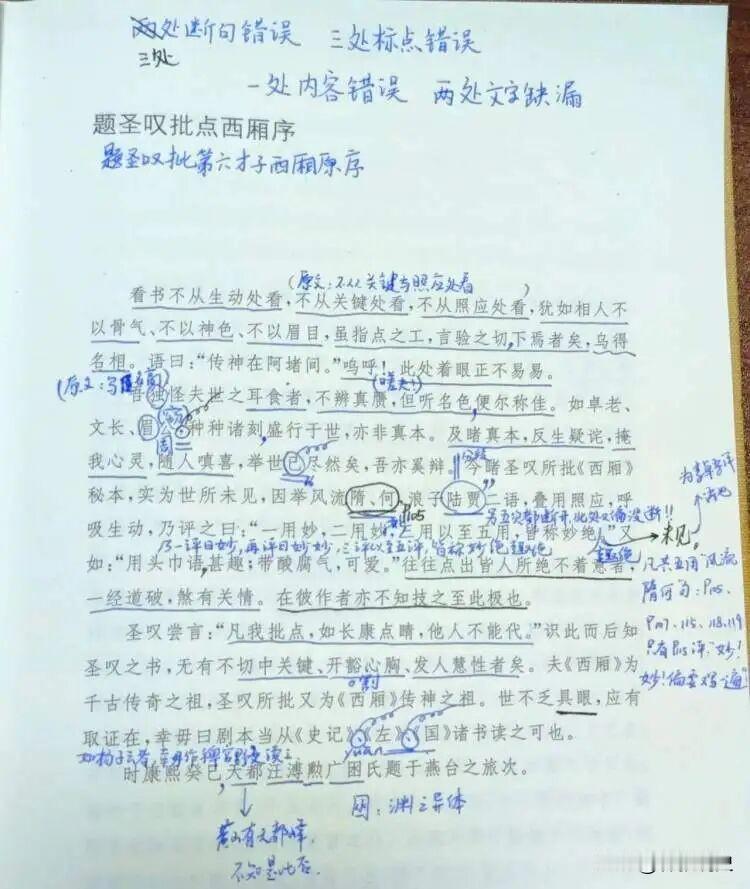 两处断句错误 三处标点错误
三处
一处内容错误 两处文字缺漏
题圣叹批点西厢序
题圣叹批第六才子西厢原序
(原文:不从关键与照应处看)
看书不从生动处看,不从关键处看,不从照应处看,犹如相人不
以骨气、不以神色、不以眉目,虽指点之工,言验之切下焉者矣,乌得
名相。语曰:“传神在阿堵间。”呜呼!此处着眼正不易易。
吾独怪夫世之耳食者,不辨真赝,但听名色,便尔称佳。如卓老、
文长、眉公种种诸刻盛行于世,亦非真本。及睹真本,反生疑诧,掩
我心灵,随人嗔喜,举世已尽然矣,吾亦奚辩。今睹圣叹所批《西厢》
秘本,实为世所未见,因举风流隋、何,浪子陆贾二语,叠用照应,呼
P105
另五次都断开,此处又偏没断!!
吸生动,乃评之曰:“一用妙,二用妙,三用以至五用,皆称妙绝。”又
乃一评曰妙,再评曰妙妙,三评以至五评,皆称妙绝
未见
如:“用头巾语甚趣;带酸腐气,可爱。”往往点出皆人所绝不着意者,
一经道破,煞有关情。在彼作者亦不知技之至此极也。
凡共五用“风流
隋何”句:P105、
P107、115、118、119
只有P115评“妙!
圣叹尝言:“凡我批点,如长康点睛,他人不能代。”识此而后知
圣叹之书,无有不切中关键、开豁心胸、发人慧性者矣。夫《西厢》为
割
千古传奇之祖,圣叹所批又为《西厢》传神之祖。世不乏具眼,应有
取证在,幸毋曰剧本当从《史记》《左》《国》诸书读之可也。
yuān
时康熙癸巳天都汪溥勲广囦氏题于燕台之旅次。
囦:渊之异体
黄山有天都峰
不知是此否.